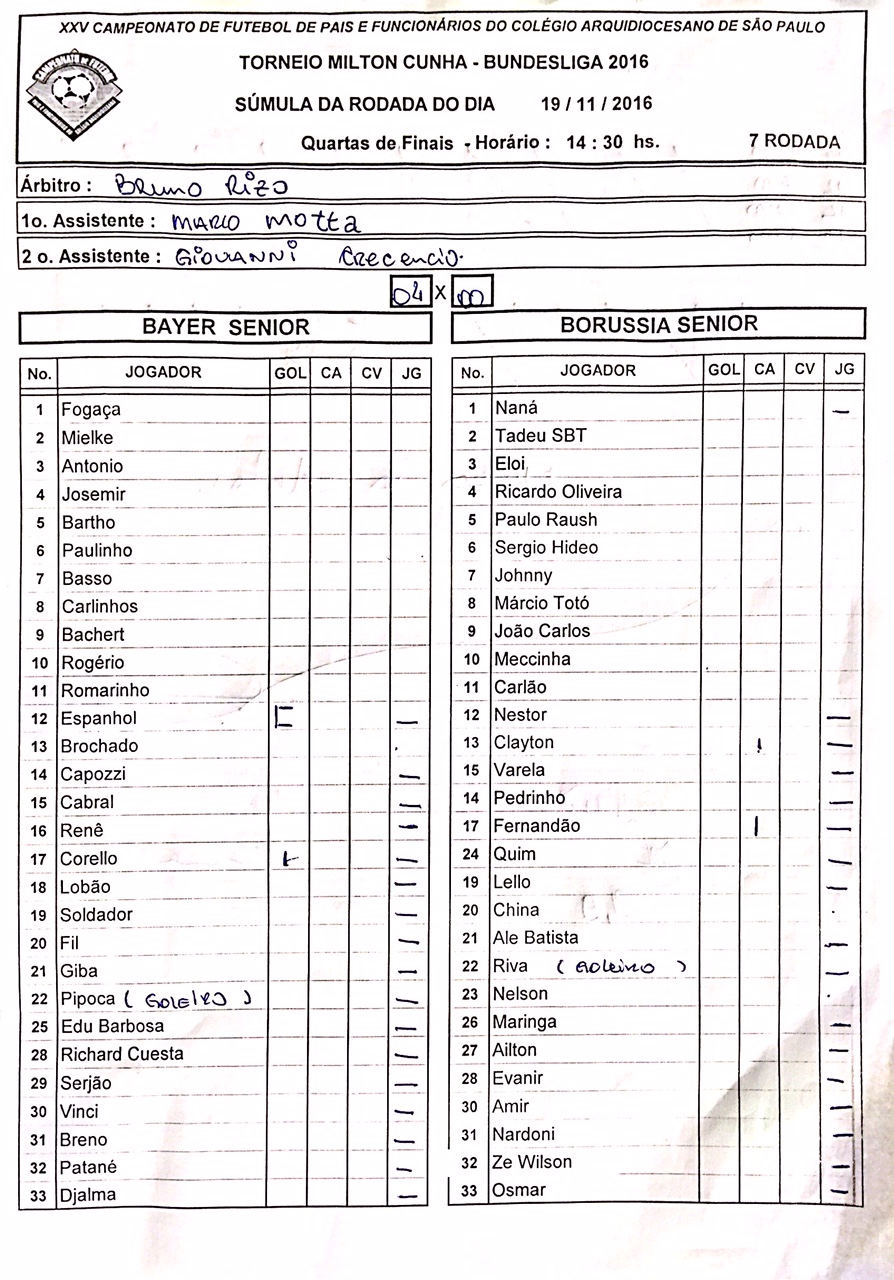 XXV CAMPEONATO DE FUTEBOL DE PAIS E FUNCIONÁRIOS DO COLÉGIO ARQUIDIOCESANO DE SÃO PAULO
TORNEIO MILTON CUNHA - BUNDESLIGA 2016
SÚMULA DA RODADA DO DIA 19 / 11 / 2016
Quartas de Finais - Horário : 14 : 30 hs. 7 RODADA
Árbitro : Bruno Rizo
1o. Assistente : MARIO Motta
2 o. Assistente : GiOVANNi Crecencio.
04 X 00
BAYER SENIOR
No. JOGADOR GOL CA CV JG
1 Fogaça
2 Mielke
3 Antonio
4 Josemir
5 Bartho
6 Paulinho
7 Basso
8 Carlinhos
9 Bachert
10 Rogério
11 Romarinho
12 Espanhol
13 Brochado
14 Capozzi
15 Cabral
16 Renê
17 Corello
18 Lobão
19 Soldador
20 Fil
21 Giba
22 Pipoca ( GOLEIRO )
25 Edu Barbosa
28 Richard Cuesta
29 Serjão
30 Vinci
31 Breno
32 Patané
33 Djalma
BORUSSIA SENIOR
No. JOGADOR GOL CA CV JG
1 Naná
2 Tadeu SBT
3 Eloi
4 Ricardo Oliveira
5 Paulo Raush
6 Sergio Hideo
7 Johnny
8 Márcio Totó
9 João Carlos
10 Meccinha
11 Carlão
12 Nestor
13 Clayton
15 Varela
14 Pedrinho
17 Fernandão
24 Quim
19 Lello
20 China
21 Ale Batista
22 Riva ( Goleiro )
23 Nelson
26 Maringa
27 Ailton
28 Evanir
30 Amir
31 Nardoni
32 Ze Wilson
33 Osmar